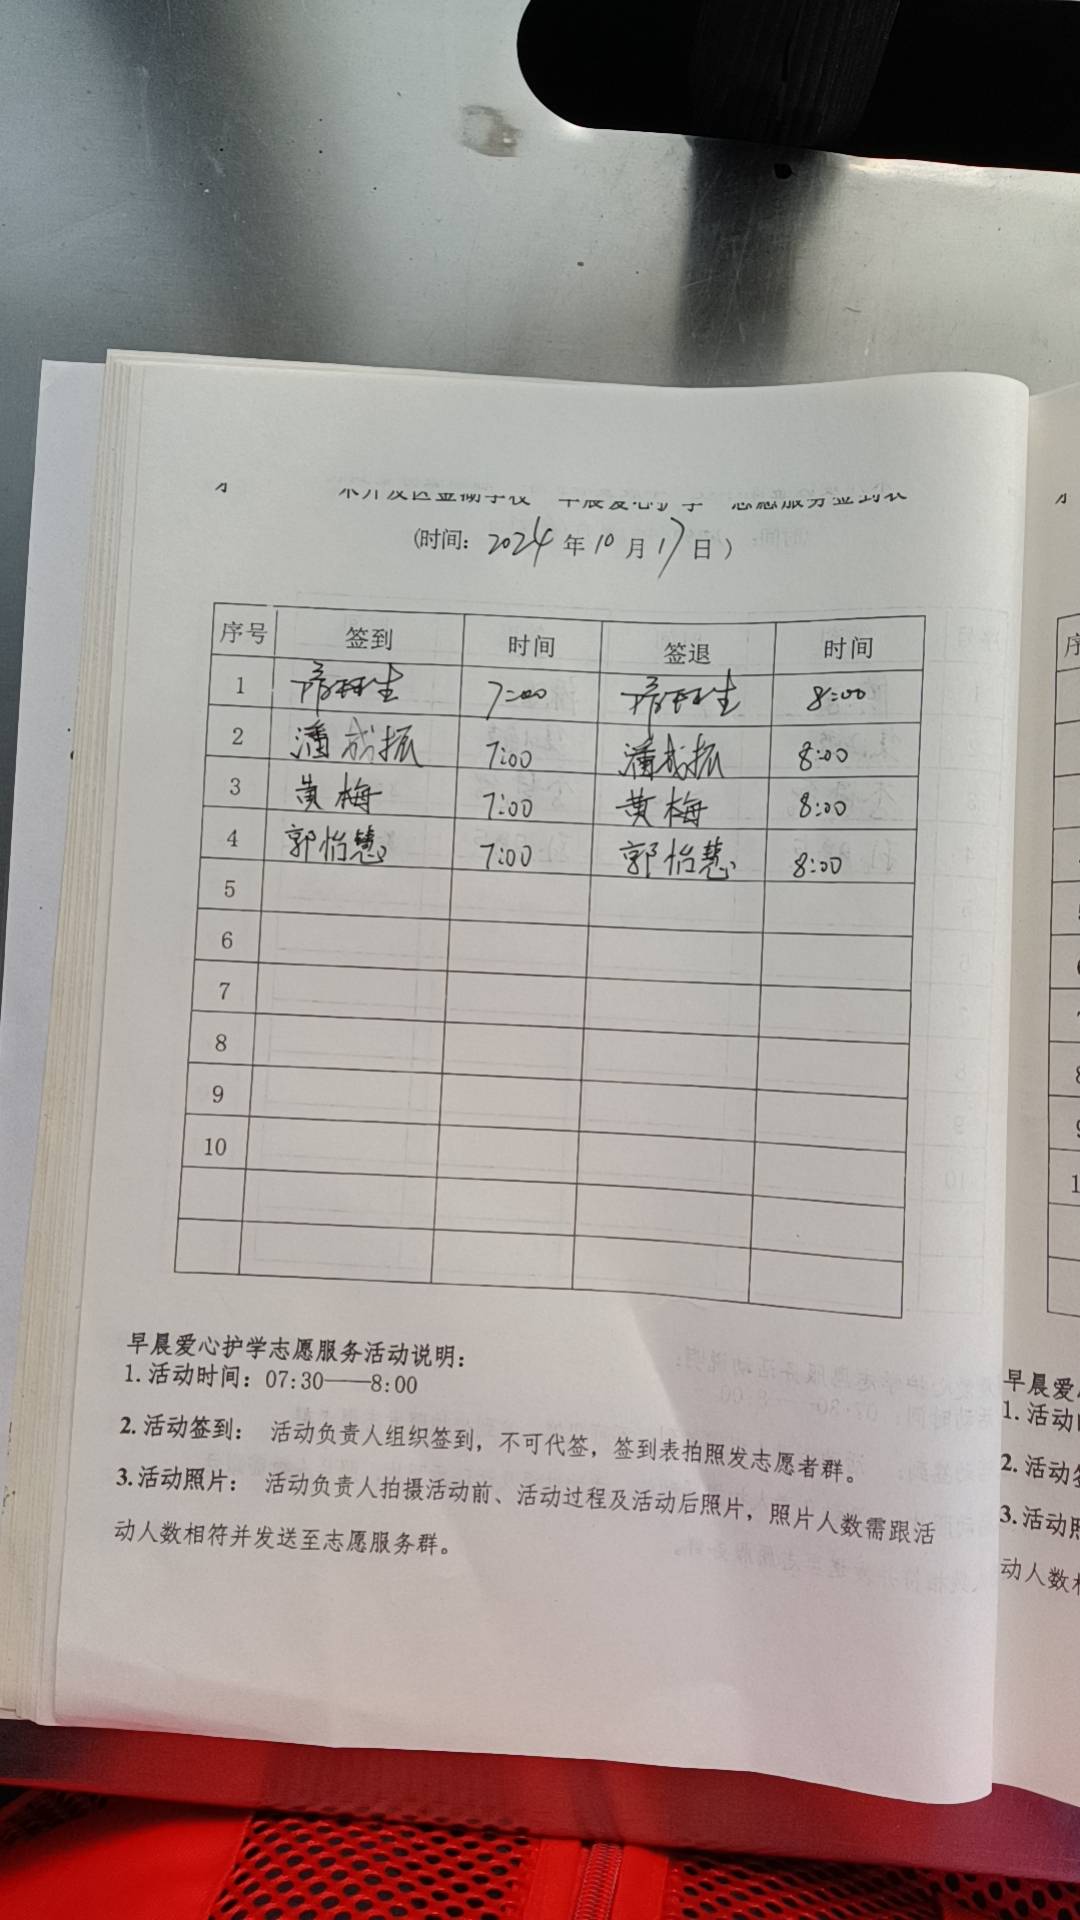 早晨爱心护学 志愿服务签到表
(时间: 2024年10月17日)
序号 签到 时间 签退 时间
1 7:00 8:00
2 潘成振 7:00 潘成振 8:00
3 黄梅 7:00 黄梅 8:00
4 郭怡慧 7:00 郭怡慧 8:00
5
6
7
8
9
10
早晨爱心护学志愿服务活动说明:
1.活动时间: 07:30——8:00
2.活动签到: 活动负责人组织签到, 不可代签, 签到表拍照发志愿者群。
3.活动照片: 活动负责人拍摄活动前、活动过程及活动后照片, 照片人数需跟活
动人数相符并发送至志愿服务群。
早晨爱
1.活动
2.活动
3.活动
动人数